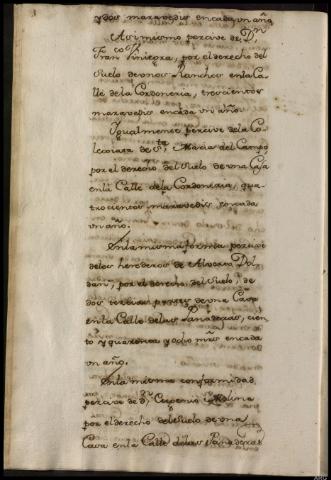 y dos maravedis encada, un año
Asimismo percive de Dn.
Franco. Piniegra, por el derecho del
suelo de unos Ranchos en la Ca-
lle de la Cordoneria, trescientos
maravedis encada un año.
Ygualmente percive dela Co-
lecciata de Sta. Maria del Campo
por el derecho del suelo de una Casa
enla Calle dela Cordoneria, qua-
trocientos maravedis encada
un año.
En la misma forma percive
delos herederos de Alvaro Rol-
dan, por el derecho del suelo, de
dos tercias partes de una Casa
enla Calle delas Panaderas, cien-
to y quarenta y ocho mrs. encada
un año.
En la misma conformidad,
percive de Dn. Eugenio Molina
por el derecho del suelo de una
Casa enla Calle delas Panaderas